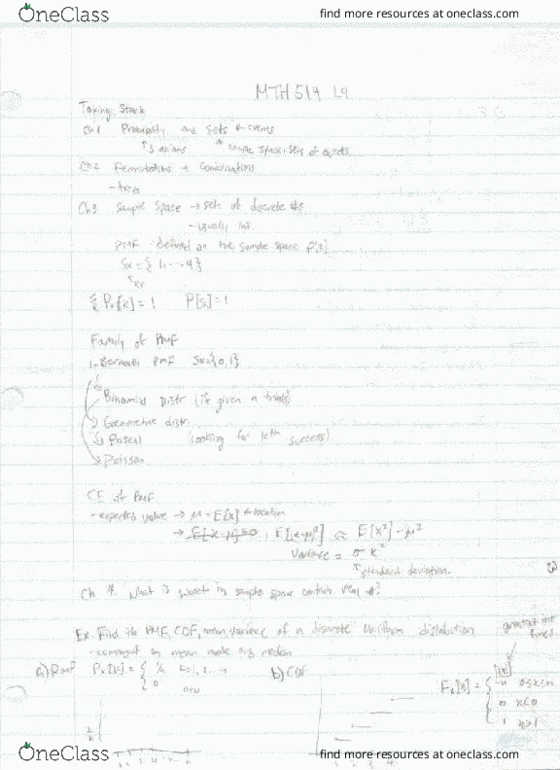 OneClass
find more resources at oneclass.com
MTH 514 L9
Taking Stock
Ch 1 Probability are sets ← events
↑ 3 axioms ↑ sample space, sets of objects
Ch 2 Permutations + Combinations
- trees
Ch 3 Sample space → sets of discrete #s
- usually int.
PMF - defined on the sample space P[s]
Sx = { 1, ... 4 }
P[s] = 1
Family of PMF
1. Bernoulli PMF Sx={0,1}
Binomial Distr (if given n trials)
Geometric distr
Pascal (looking for kth success)
Poisson
of PMF
- expected value → μ = E[x] ← location
→ E[x-μ]=0, E[(x-μ)²] E[x²]-μ²
Variance = σx²
↑ standard deviation.
Ch 4. What if sample space contains real #?
Ex. Find the PMF, CDF, mean, variance of a discrete uniform distribution
- comment on mean mode and median
greatest int funct
a) PMF Px[k] = { 1/n k=1, ... n
0 o/w
b) CDF
0≤x≤n
0 x<0
1 x>1
OneClass
find more resources at oneclass.com